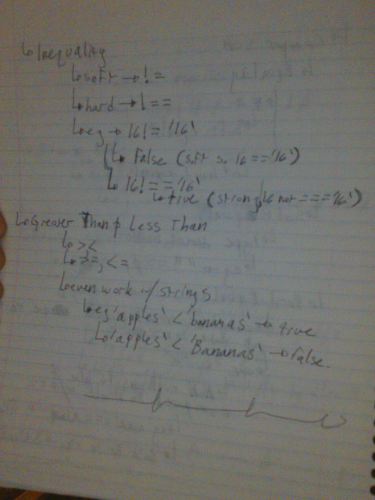 ↳ Inequality
↳ soft → !=
↳ hard → !==
↳ eg → 16 != '16'
↳ False (soft so 16 == '16')
↳ 16 !== '16'
↳ true (strong 16 not === '16')
↳ Greater Than & Less Than
↳ > <
↳ >=, <=
↳ even work w/ strings
↳ eg 'apples' < 'bananas' → true
↳ 'apples' < 'Bananas' → false.